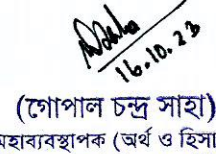 16.10.23
(গোপাল চন্দ্র সাহা)
মহাব্যবস্থাপক (অর্থ ও হিসা